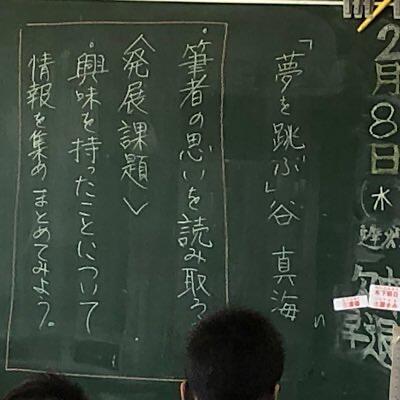 2月8日(水)
早退
「夢を跳ぶ」谷 真海
・筆者の思いを読み取ろ
〈発展課題〉
・興味を持ったことについて
情報を集め まとめてみよう。